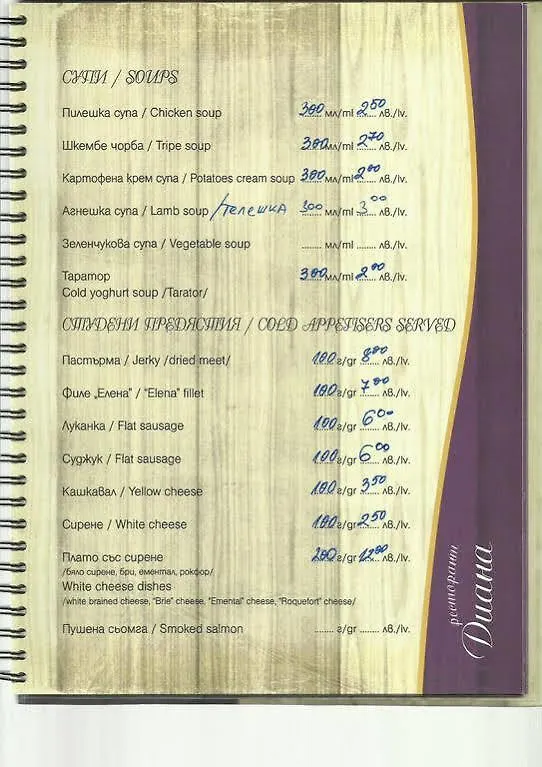 СУПИ / SOUPS
Пилешка супа / Chicken soup 300 мл/ml 2 50 лв./lv.
Шкембе чорба / Tripe soup 300 мл/ml 2 70 лв./lv.
Картофена крем супа / Potatoes cream soup 300 мл/ml 2 00 лв./lv.
Агнешка супа / Lamb soup /телешка 300 мл/ml 3 00 лв./lv.
Зеленчукова супа / Vegetable soup ........ мл/ml ........ лв./lv.
Таратор 300 мл/ml 2 00 лв./lv.
Cold yoghurt soup /Tarator/
СТУДЕНИ ПРЕДЯСТИЯ / COLD APPETISERS SERVED
Пастърма / Jerky /dried meet/ 100 г/gr 8 00 лв./lv.
Филе „Елена" / "Elena" fillet 100 г/gr 7 00 лв./lv.
Луканка / Flat sausage 100 г/gr 6 00 лв./lv.
Суджук / Flat sausage 100 г/gr 6 00 лв./lv.
Кашкавал / Yellow cheese 100 г/gr 3 50 лв./lv.
Сирене / White cheese 100 г/gr 2 50 лв./lv.
Плато със сирене 200 г/gr лв./lv.
/бяло сирене, бри, ементал, рокфор/
White cheese dishes
/white brained cheese, "Brie" cheese, "Emental" cheese, "Roquefort" cheese/
Пушена сьомга / Smoked salmon ........ г/gr ........ лв./lv.
ресторант
Диана